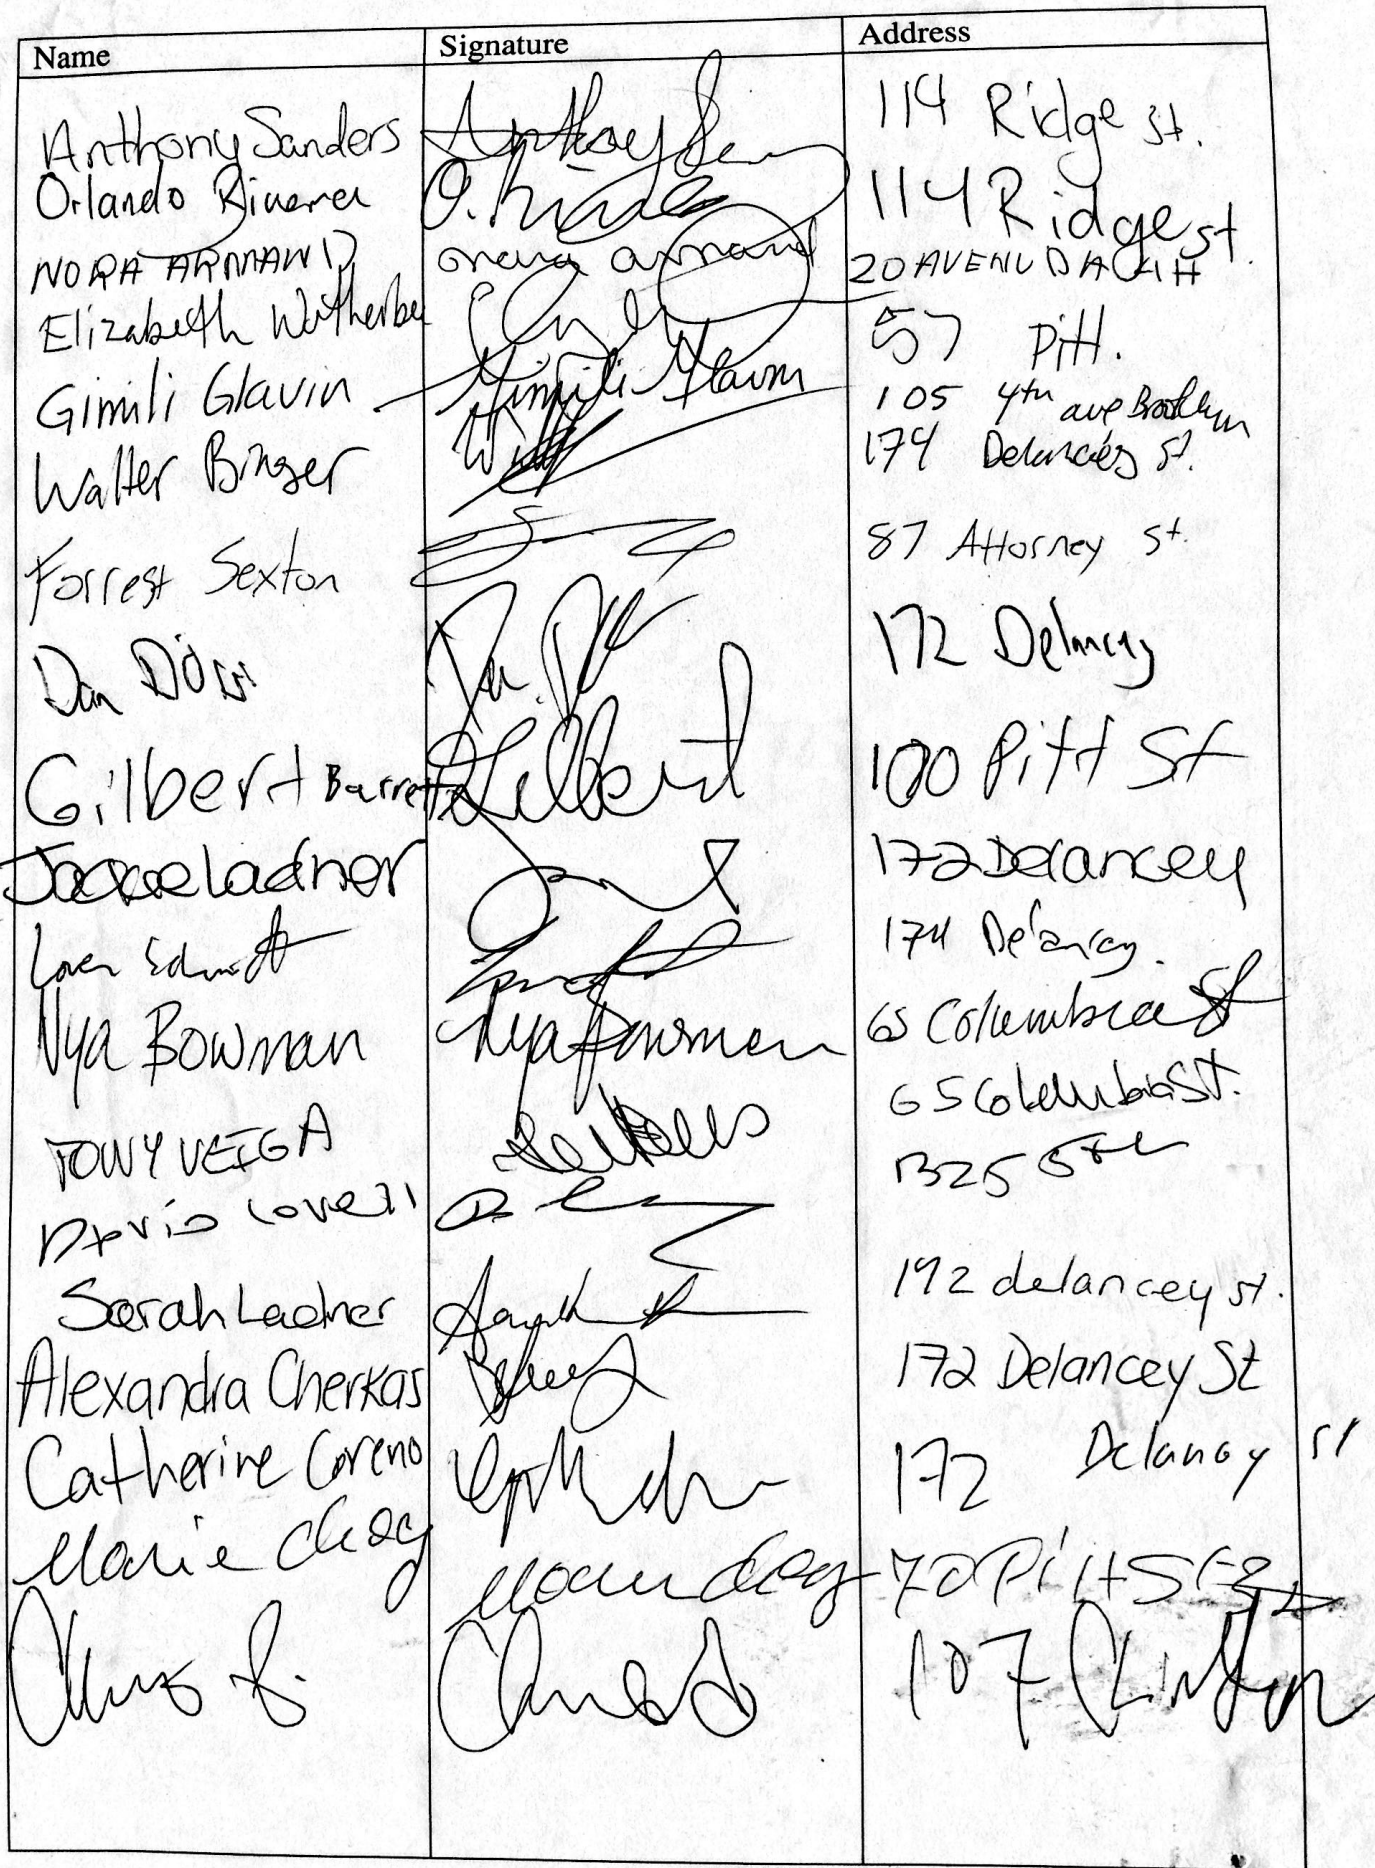 Name Signature Address
Anthony Sanders Anthony 114 Ridge St.
Orlando Rivera O. 114 Ridge St.
NORA ARMAND nora armand 20 AVENU D
Elizabeth 57 Pitt.
Gimili Glavin Gimili Glavin 105 4th ave Brooklyn
Walter Binger 174 Delancey St.
Forrest Sexton 87 Attorney St.
Dan 172 Delancey
Gilbert Barrett Gilbert 100 Pitt St
Ladner 172 Delancey
174 Delancey.
Nya Bowman Nya Bowman 65 Columbia St
TONY VEIGA 65 Columbia St.
David Lovell D. 5th
Sarah Ladner Sarah 192 delancey st.
Alexandra Cherkas 172 Delancey St
Catherine Coreno 172 Delancey St
Marie 70 Pitt St
107 Clinton